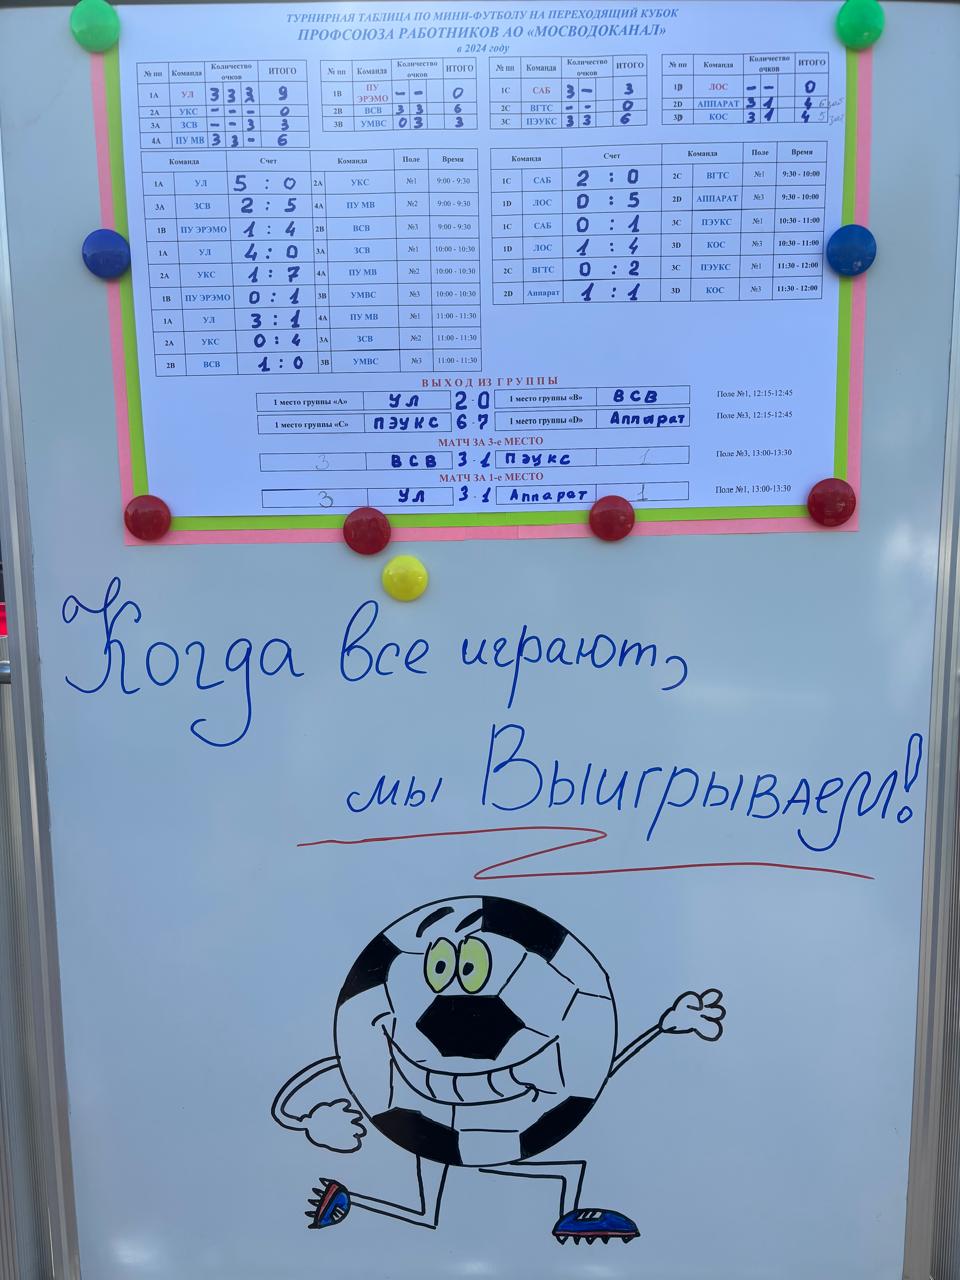 ТУРНИРНАЯ ТАБЛИЦА ПО МИНИ-ФУТБОЛУ НА ПЕРЕХОДЯЩИЙ КУБОК
ПРОФСОЮЗА РАБОТНИКОВ АО «МОСВОДОКАНАЛ»
в 2024 году
№ пп Команда Количество очков ИТОГО
1А УЛ 3 3 3 9
2А УКС - - - 0
3А ЗСВ - - 3 3
4А ПУ МВ 3 3 - 6
№ пп Команда Количество очков ИТОГО
1В ПУ ЭРЭМО - - 0
2В ВСВ 3 3 6
3В УМВС 0 3 3
№ пп Команда Количество очков ИТОГО
1С САБ 3 - 3
2С ВГТС - - 0
3С ПЭУКС 3 3 6
№ пп Команда Количество очков ИТОГО
1D ЛОС - - 0
2D АППАРАТ 3 1 4
3D КОС 3 1 4
Команда Счет Команда Поле Время
1А УЛ 5 : 0 2А УКС №1 9:00 - 9:30
3А ЗСВ 2 : 5 4А ПУ МВ №2 9:00 - 9:30
1В ПУ ЭРЭМО 1 : 4 2В ВСВ №3 9:00 - 9:30
1А УЛ 4 : 0 3А ЗСВ №1 10:00 - 10:30
2А УКС 1 : 7 4А ПУ МВ №2 10:00 - 10:30
1В ПУ ЭРЭМО 0 : 1 3В УМВС №3 10:00 - 10:30
1А УЛ 3 : 1 4А ПУ МВ №1 11:00 - 11:30
2А УКС 0 : 4 3А ЗСВ №2 11:00 - 11:30
2В ВСВ 1 : 0 3В УМВС №3 11:00 - 11:30
Команда Счет Команда Поле Время
1С САБ 2 : 0 2С ВГТС №1 9:30 - 10:00
1D ЛОС 0 : 5 2D АППАРАТ №3 9:30 - 10:00
1С САБ 0 : 1 3С ПЭУКС №1 10:30 - 11:00
1D ЛОС 1 : 4 3D КОС №3 10:30 - 11:00
2С ВГТС 0 : 2 3С ПЭУКС №1 11:30 - 12:00
2D Аппарат 1 : 1 3D КОС №3 11:30 - 12:00
ВЫХОД ИЗ ГРУППЫ
1 место группы «А» УЛ 2 - 0 1 место группы «В» ВСВ Поле №1, 12:15-12:45
1 место группы «С» ПЭУКС 6 - 7 1 место группы «D» Аппарат Поле №3, 12:15-12:45
МАТЧ ЗА 3-е МЕСТО
3 ВСВ 3 - 1 ПЭУКС 1 Поле №3, 13:00-13:30
МАТЧ ЗА 1-е МЕСТО
3 УЛ 3 - 1 Аппарат 1 Поле №1, 13:00-13:30
Когда все играют,
мы Выигрываем!